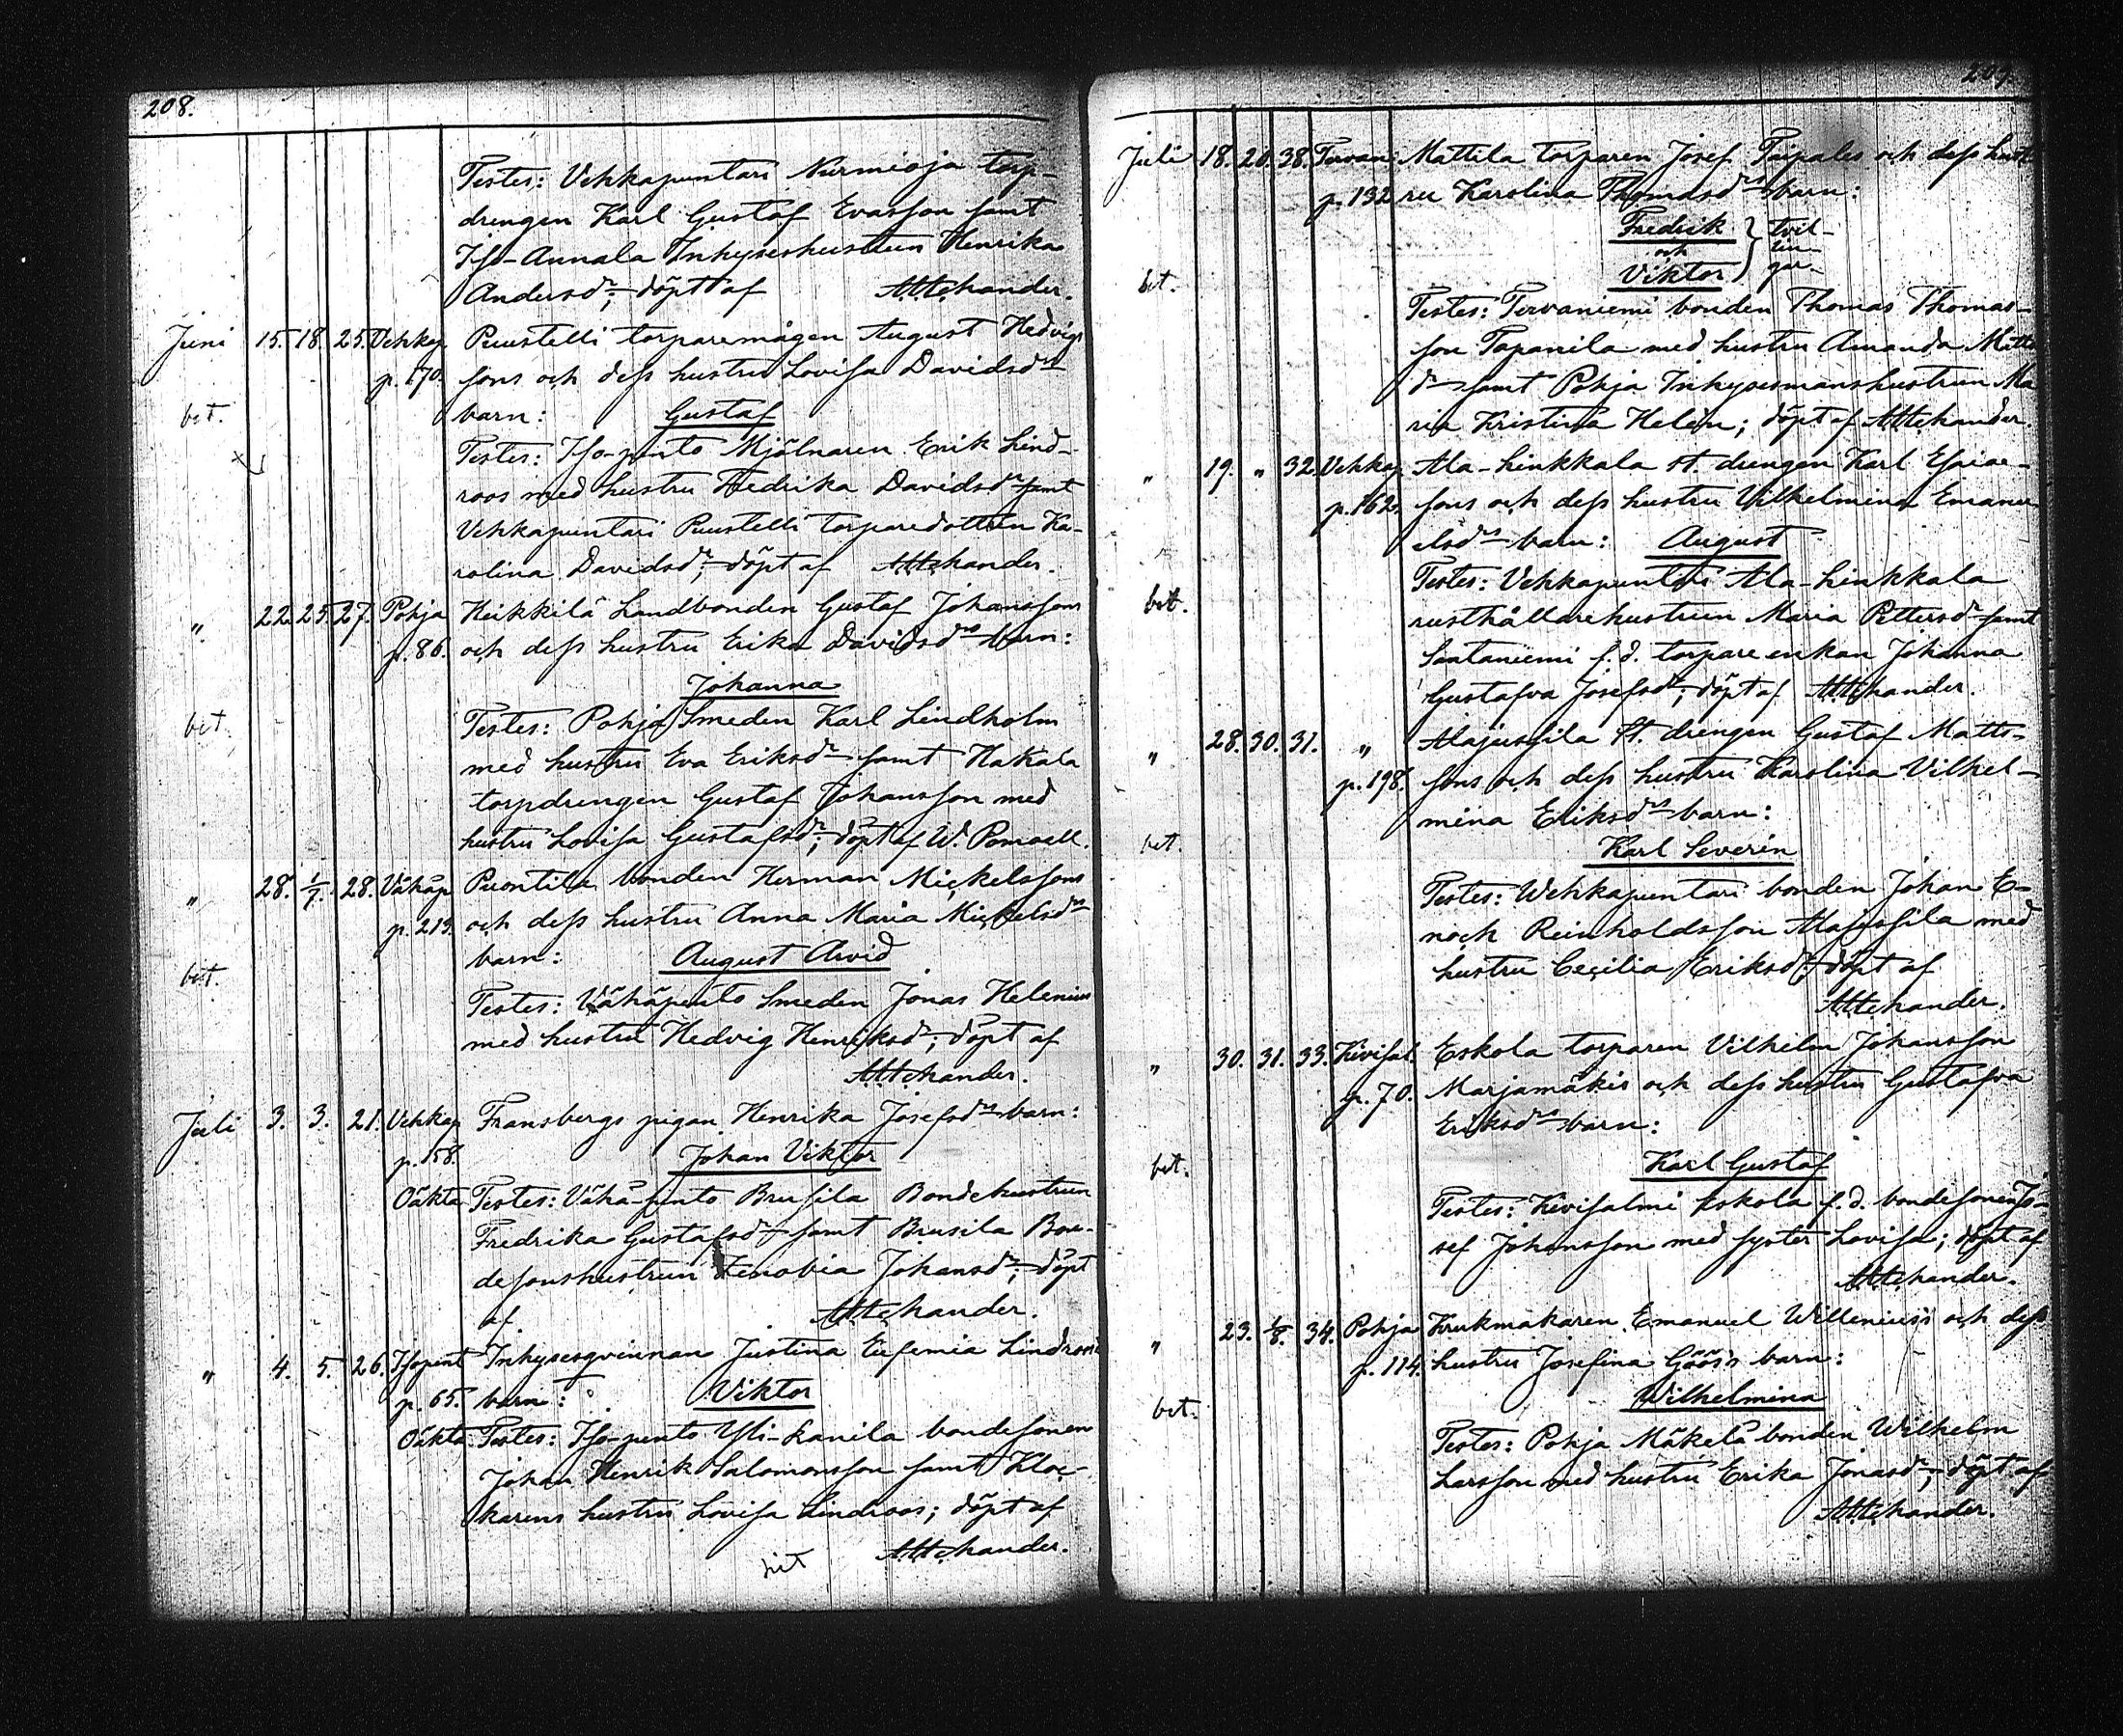 208.
Testes: Vehkapuntari Nurmioja torp-
drengen Karl Gustaf Evasson samt
Iso-Annala Inhyseshustrun Henrika
Andersdr; döpt af
Juni 15. 18. 25. Vehkap. Puustelli torparemågen August Hedvigs
p. 170. sons och dess hustru Lovisa Davidsdrs
bet. barn: Gustaf
Testes: Iso-pento Mjölnaren Erik Lind-
roos med hustru Fredrika Davidsdr samt
Vehkapuntari Puustelli torparedottren Ka-
rolina Davidsdr; döpt af
" 22. 25. 27. Pohja Heikkilä Landbonden Gustaf Johanssons
p. 86. och dess hustru Erika Davidsdrs barn:
Johanna
bet. Testes: Pohja Smeden Karl Lindholm
med hustru Eva Eriksdr samt Hakala
torpdrengen Gustaf Johansson med
hustru Lovisa Gustafsdr; döpt af W. Pomoell.
" 28. 1/7. 28. Vähäp. Puontila bonden Herman Mickelssons
p. 219. och dess hustru Anna Maria Mickelsdrs
barn: August Arvid
bet. Testes: Vähäpento Smeden Jonas Helenius
med hustru Hedvig Henriksdr; döpt af
Juli 3. 3. 21. Vehkap. Fransbergs pigan Henrika Josefsdrs barn:
p. 158. Johan Viktor
Oäkta Testes: Vähä-pento Brusila Bondehustrun
Fredrika Gustafsdr samt Brusila Bon-
desonshustrun Zenobia Johansdr; döpt
af
" 4. 5. 26. Isopent. Inhysesqvinnan Justina Eufemia Lindroos
p. 65. barn: Viktor
Oäkta Testes: Iso-pento Yli-kanila bondesonen
Johan Henrik Salomonsson samt Kloc-
karens hustru Lovisa Lindroos; döpt af
209.
Juli 18. 20. 38. Tervani. Mattila torparen Josef Taipales och dess hust-
p. 132 ru Karolina Thomasdrs barn:
Fredrik
och
Viktor
tvil-
lin-
gar
bet.
Testes: Tervaniemi bonden Thomas Thomas-
son Tapanila med hustru Amanda Matts
dr samt Pohja Inhysesmanshustrun Ma
ria Kristina Helén; döpt af
" 19. " 32. Vehkap. Ala-hinkkala st. drengen Karl Esaias-
p. 162. sons och dess hustru Vilhelmina Emanu-
elsdrs barn: August
bet. Testes: Vehkapuntari Ala-hinkkala
rusthållarehustrun Maria Pettersdr samt
Santaniemi f.d. torpare enkan Johanna
Gustafva Josefsdr; döpt af
" 28. 30. 31. " Alajussila st. drengen Gustaf Matts-
p. 198. sons och dess hustru Karolina Vilhel-
mina Eriksdrs barn:
bet. Karl Severin
Testes: Wehkapuntari bonden Johan E-
noch Reinholdsson Alajussila med
hustru Cecilia Eriksdr; döpt af
" 30. 31. 33. Kivisal. Eskola torparen Vilhelm Johansson
p. 70. Marjamäkis och dess hustru Gustafva
Eriksdrs barn:
bet. Karl Gustaf
Testes: Kivisalmi Eskola f.d. bondesonen Jo-
sef Johansson med syster Lovisa; döpt af
" 23. 1/8. 34. Pohja Krukmakaren Emanuel Willenius's och dess
p. 114. hustru Josefina Göös's barn:
bet. Wilhelmina
Testes: Pohja Mäkelä bonden Wilhelm
Larsson med hustru Erika Jonasdr; döpt af